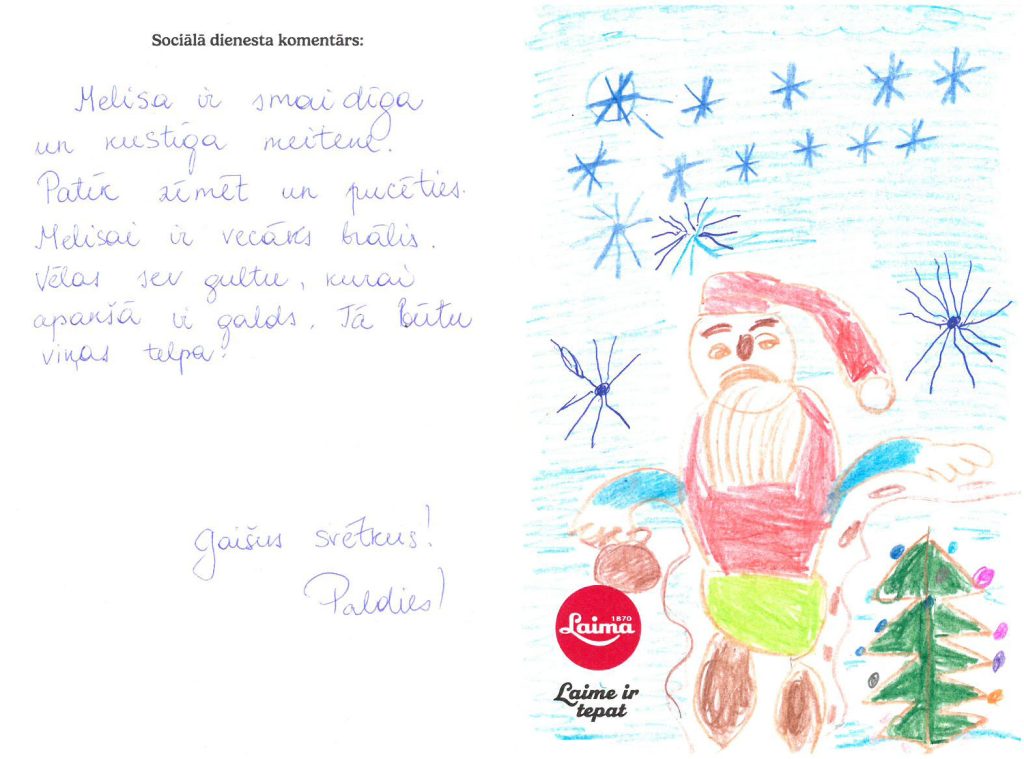 Sociālā dienesta komentārs:
Melisa ir smaidīga
un kustīga meitene.
Patīk zīmēt un pucēties.
Melisai ir vecāks brālis.
Vēlas sev gultu, kurai
apakšā ir galds. Tā būtu
viņas telpa.
Gaišus svētkus!
Paldies!
Laima
1870
Laime ir
tepat